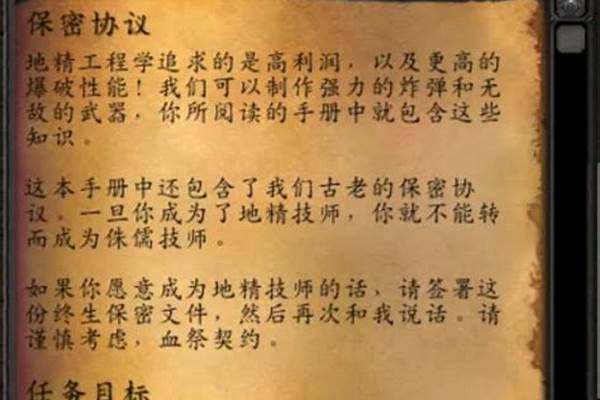 保密协议
地精工程学追求的是高利润，以及更高的
爆破性能！我们可以制作强力的炸弹和无
敌的武器，你所阅读的手册中就包含这些
知识。
这本手册中还包含了我们古老的保密协
议。一旦你成为了地精技师，你就不能转
而成为侏儒技师。
如果你愿意成为地精技师的话，请签署这
份终生保密文件，然后再次和我说话。请
谨慎考虑，血祭契约。
任务目标